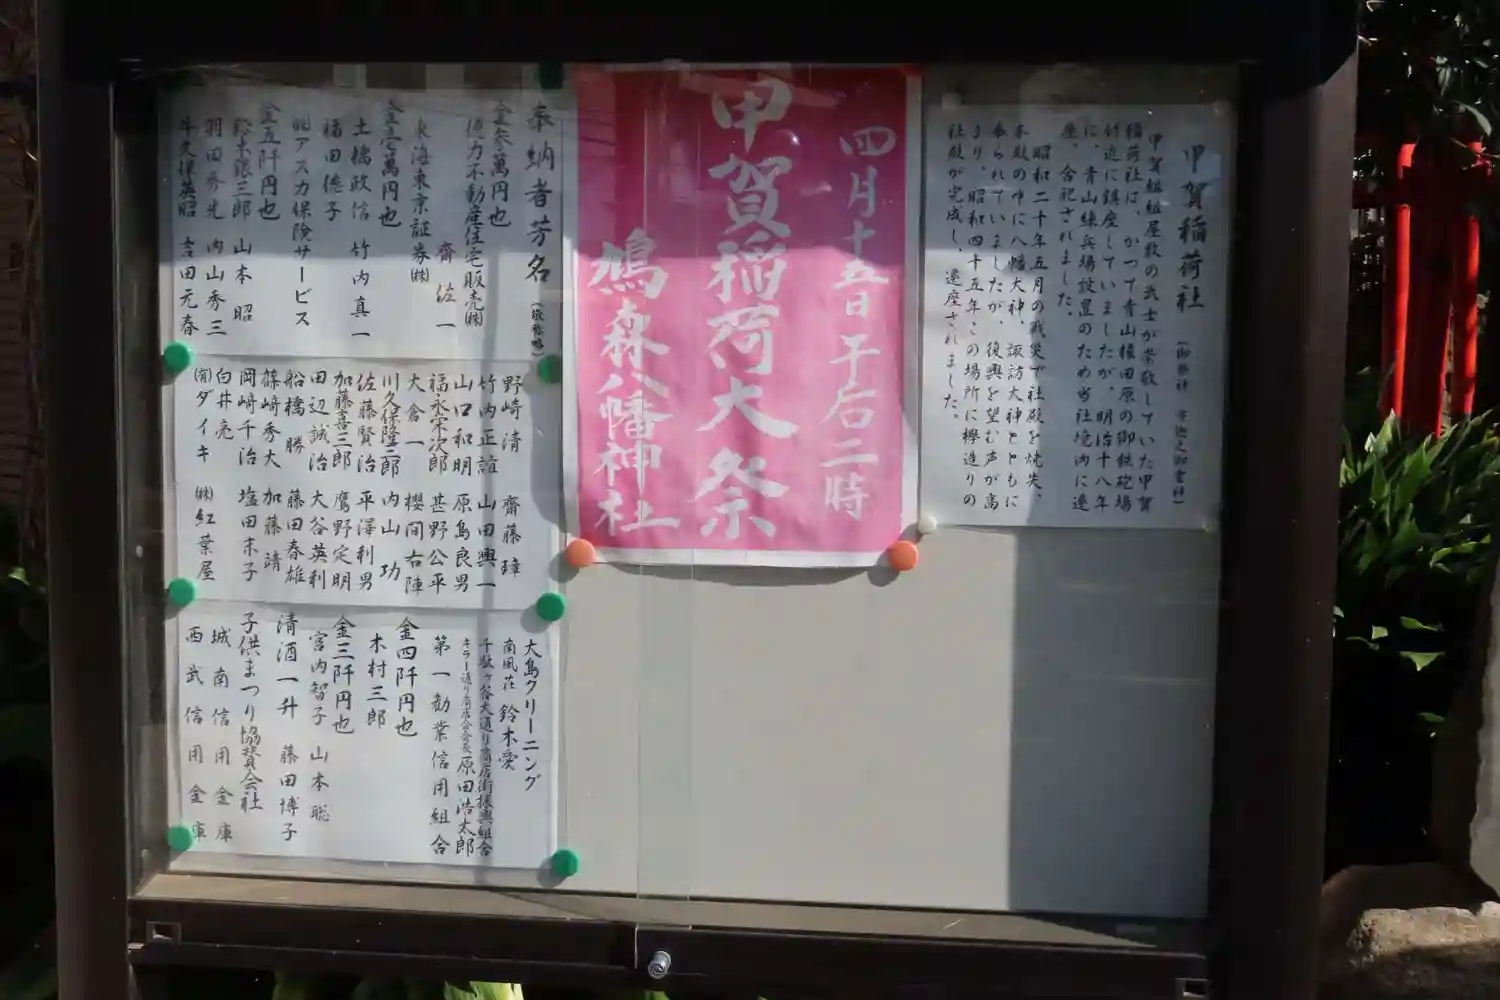 甲賀稲荷社
甲賀組組屋敷の武士が崇敬していた甲賀
稲荷社は、かつて青山権田原の御鉄砲場
付近に鎮座していましたが、明治十八年
に、青山練兵場設置のため当社境内に遷
座、合祀されました。
昭和二十年五月の戦災で社殿を焼失、
本殿の中に八幡大神、諏訪大神とともに
奉られていましたが、復興を望む声が高
まり、昭和四十五年この場所に欅造りの
社殿が完成し、遷座されました。
四月十五日 午后二時
甲賀稲荷大祭
鳩森八幡神社
奉納者芳名(敬称略)
金参萬円也
徳力不動産住宅販売㈱
齋佐一
東海東京証券㈱
金壱萬円也
土橋政信 竹内真一
福田徳子
㈱アスカ保険サービス
金五阡円也
鈴木銀三郎 山本昭
羽田秀光 内山秀三
牛久保英昭 吉田元春
野崎清 齋藤瑋
竹内正誼 山田興一
山口和明 原島良男
福永宋次郎 甚野公平
大倉一 櫻間右陣
川久保隆三郎 内山功
佐藤賢治 平澤利男
加藤喜三郎 鷹野定明
田辺誠治 大谷英利
船橋勝 藤田春雄
篠崎秀大 加藤靖
岡崎千治 塩田末子
白井亮
㈲ダイキ ㈱紅葉屋
大島クリーニング
南風荘 鈴木愛
千駄ヶ谷大通り商店街振興組合
キラー通り商店会会長 原田浩太郎
第一勧業信用組合
金四阡円也
木村三郎
金三阡円也
宮内智子 山本聡
清酒一升 藤田博子
子供まつり協賛会社
城南信用金庫
西武信用金庫